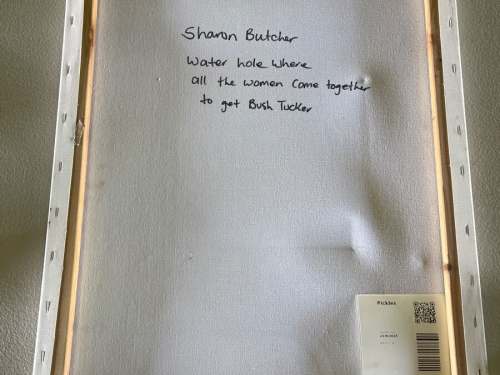 Sharon Butcher
Water hole Where
all the women come together
to get Bush Tucker
Pickles